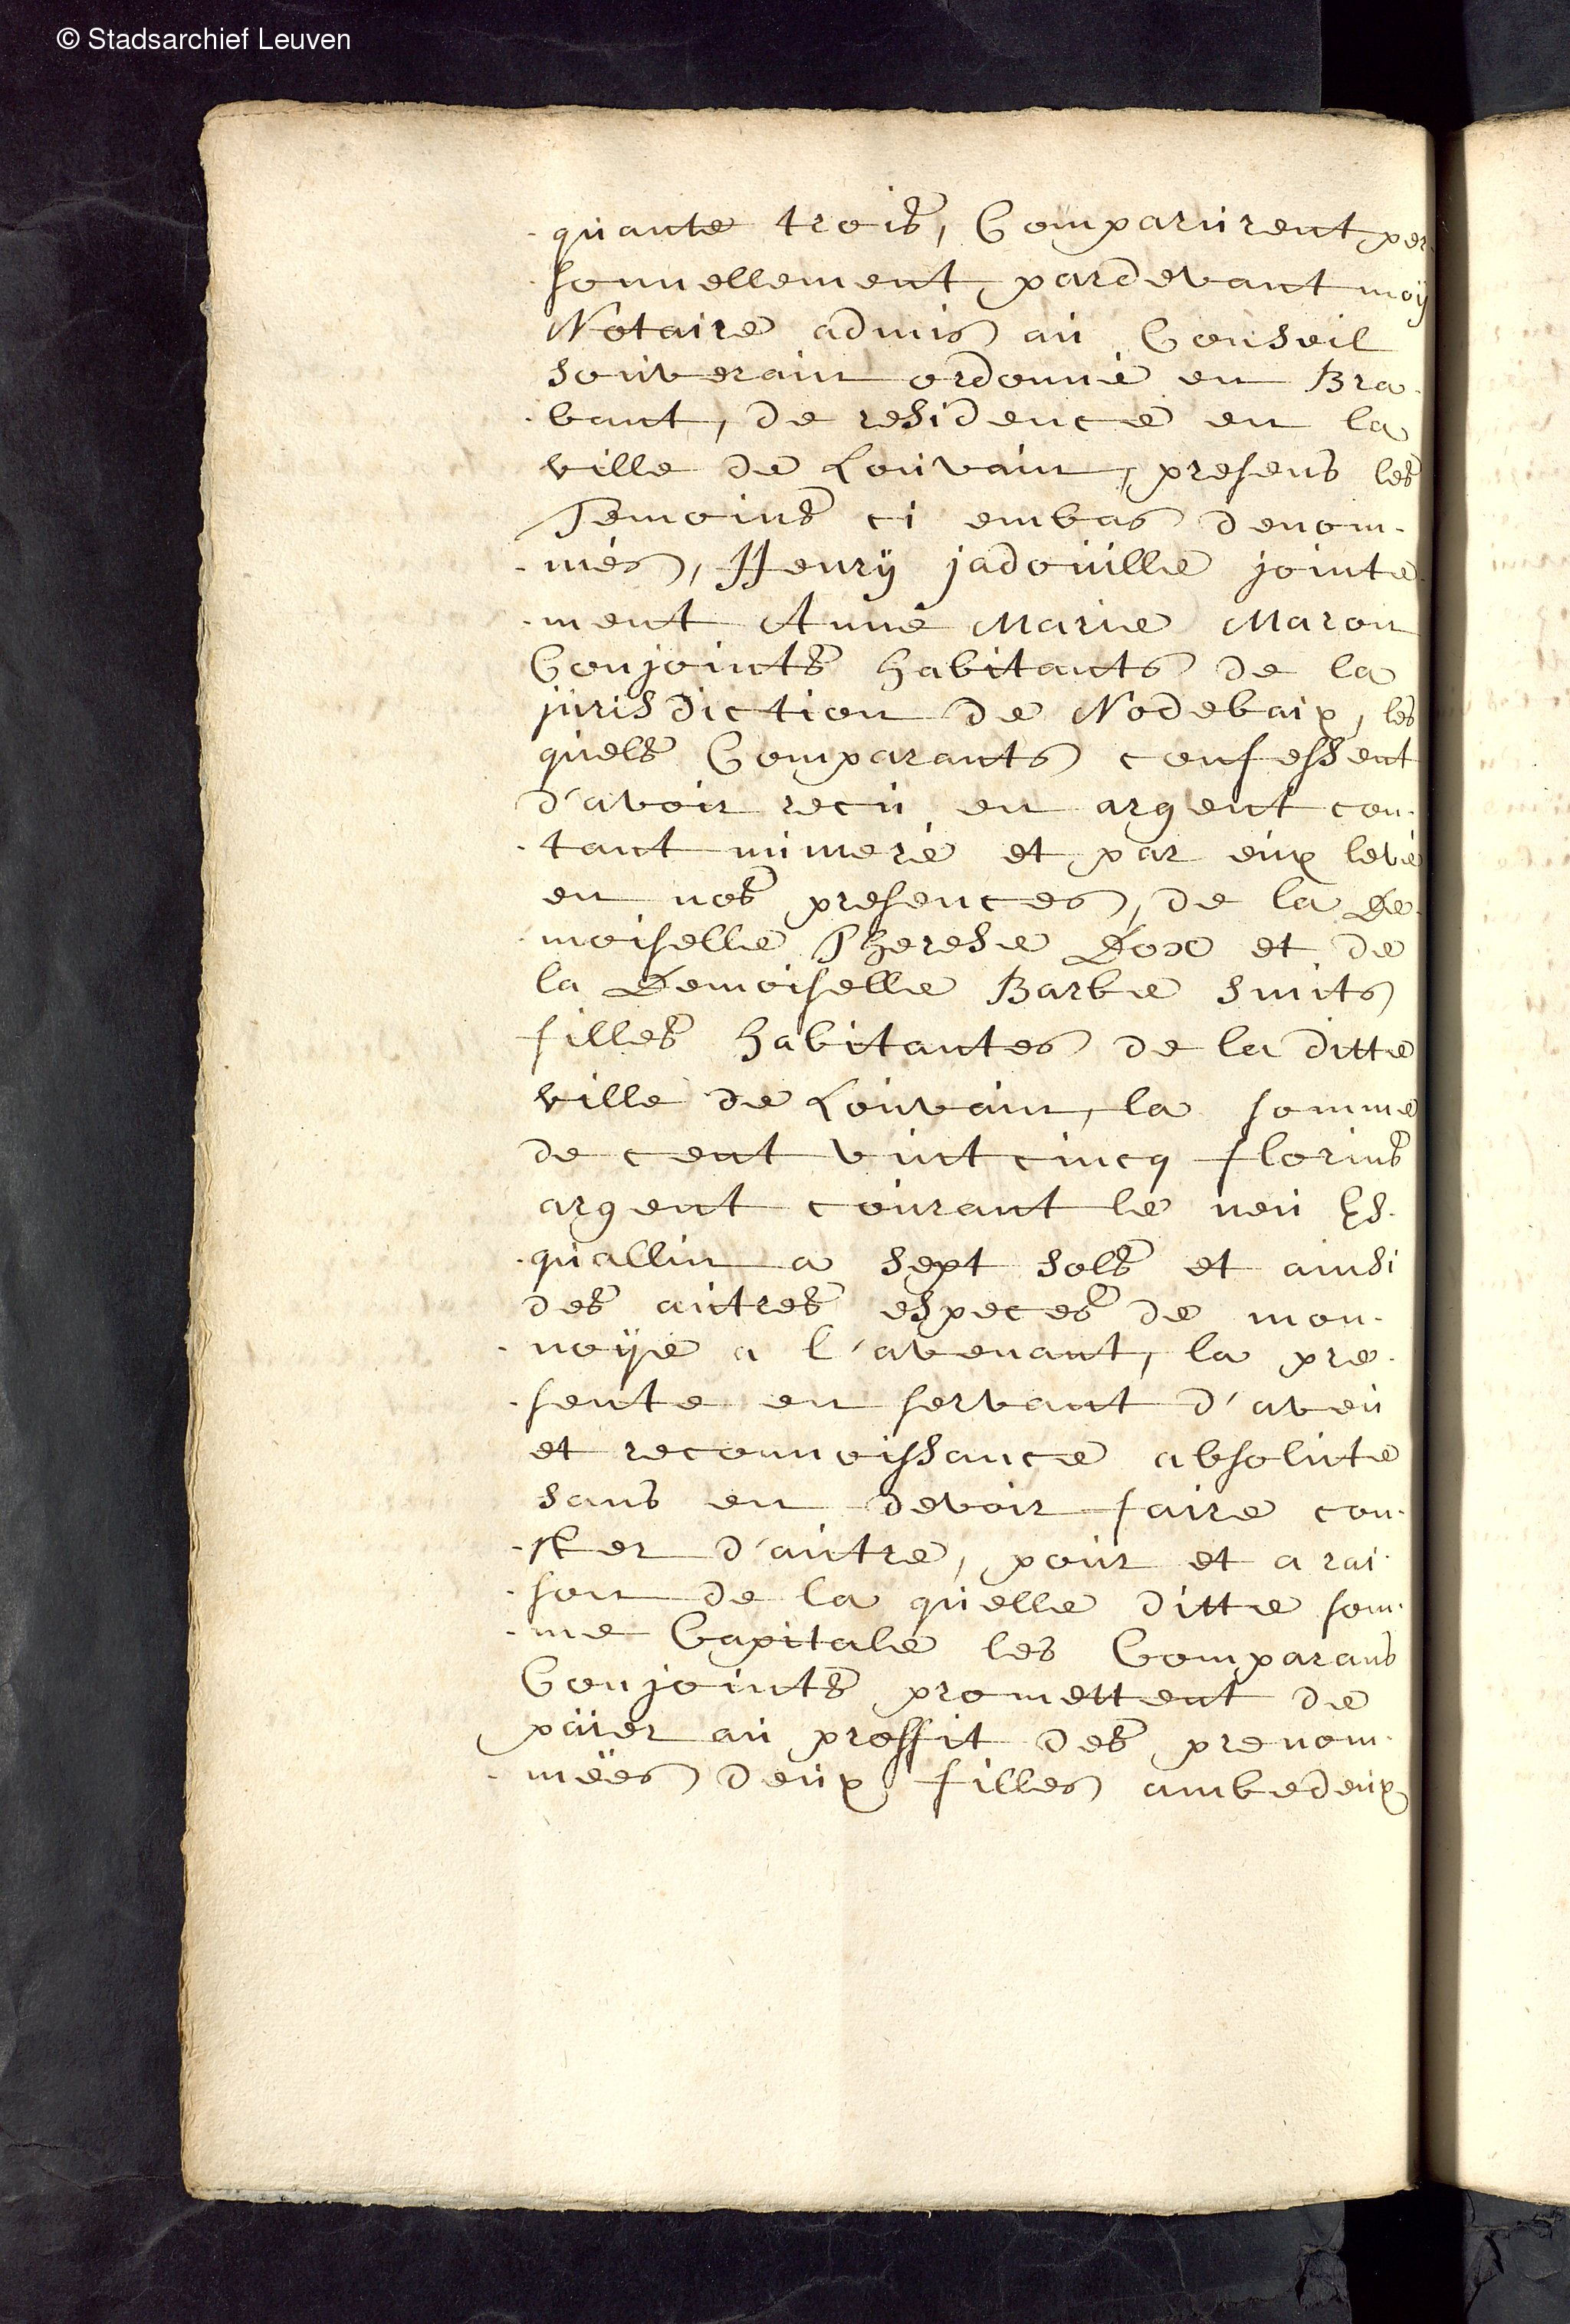 © Stadsarchief Leuven
quante trois, Comparurent per
sonnellement, pardevant moÿ
Notaire admis au Conseil
souverain ordonné en Bra-
-bant, de residence en la
ville de Louvain, presens les
Temoins ci embas denom-
-més, Henrÿ jadouille jointe-
-ment Anne Marie Maron
Conjoints habitants de la
jurisdiction de Nodebaix, les
quels Comparants confessent
d'avoir recu en argent con-
-tant numeré et par eux levé
en nos presences, de la De-
-moiselle Therese Dox et de
la Demoiselle Barbe Smits
filles habitantes de la ditte
ville de Louvain, la somme
de cent vint cincq florins
argent courant le neu Es-
-quallin a sept sols et ainsi
des autres especes de mon-
-noÿe a l'avenant, la pre-
-sente en servant d'aveu
et reconnoissance absolute
sans en devoir faire con-
-ster d'autre, pour et a rai-
-son de la quelle ditte som-
-me Capitale les Comparans
Conjoints promettent de
païer au proffit des prenom-
-mëes deux filles ambedeux